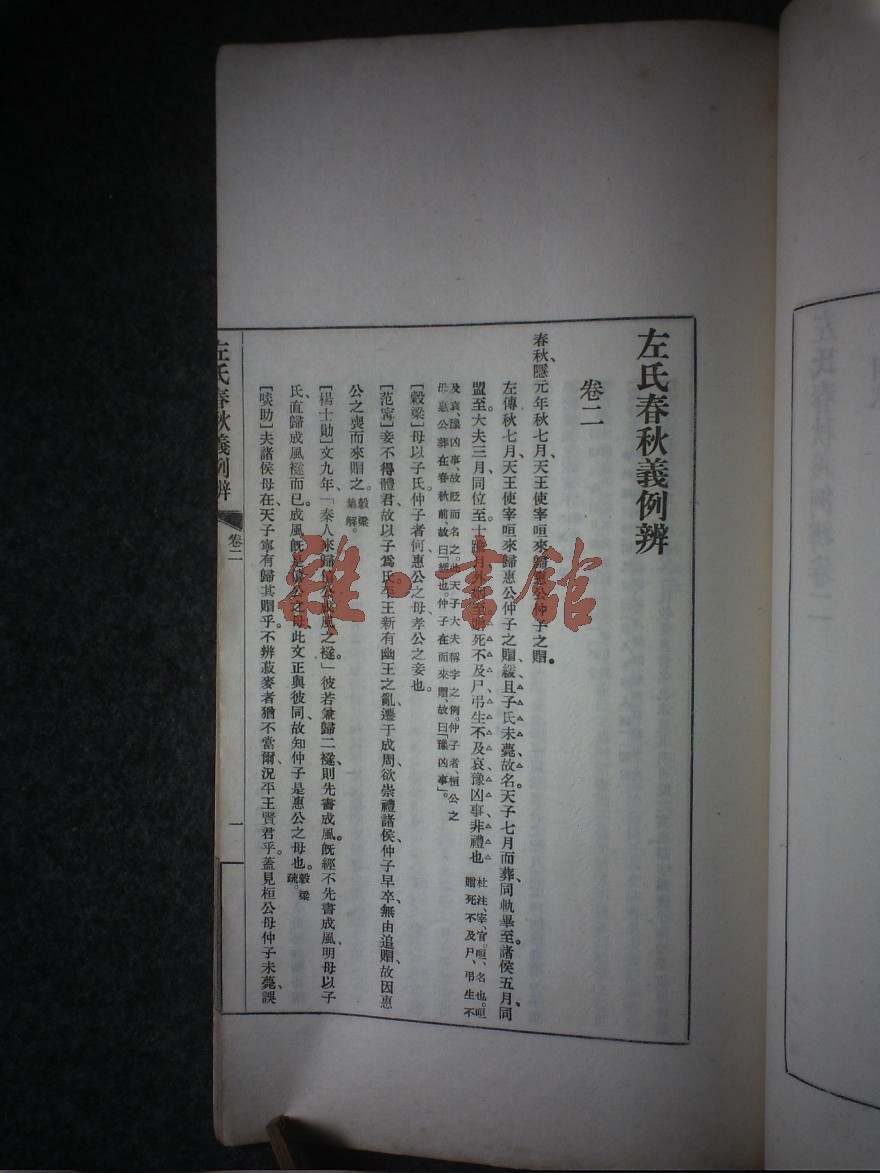 左氏春秋義例辨
卷二
春秋、隱元年秋七月、天王使宰咺來歸惠公仲子之賵。
左傳秋七月、天王使宰咺來歸惠公仲子之賵、緩、且子氏未薨、故名。天子七月而葬、同軌畢至。諸侯五月、同
盟至。大夫三月、同位至。士踰月、外姻至。贈死不及尸、弔生不及哀、豫凶事、非禮也。杜注、宰、官。咺、名也。咺贈死不及尸、弔生不
及哀、豫凶事、故貶而名之。此天子大夫稱字之例。仲子者、桓公之
母。惠公葬在春秋前、故曰「緩」也。仲子在而來賵、故曰「豫凶事」。
[穀梁]母以子氏。仲子者何、惠公之母、孝公之妾也。
[范甯]妾不得體君、故以子爲氏。平王新有幽王之亂、遷于成周、欲崇禮諸侯、仲子早卒、無由追賵、故因惠
公之喪而來賵之。穀梁集解。
[楊士勛]文九年、「秦人來歸僖公成風之襚」、彼若兼歸二襚、則先書成風。旣經不先書成風、明母以子
氏、直歸成風襚而已。成風旣是僖公之母、此文正與彼同、故知仲子是惠公之母也。穀梁疏。
[啖助]夫諸侯母在、天子寧有歸其賵乎。不辨菽麥者猶不當爾、況平王賢君乎。蓋見桓公母仲子未薨、誤
左氏春秋義例辨
卷二
一
雜·書館